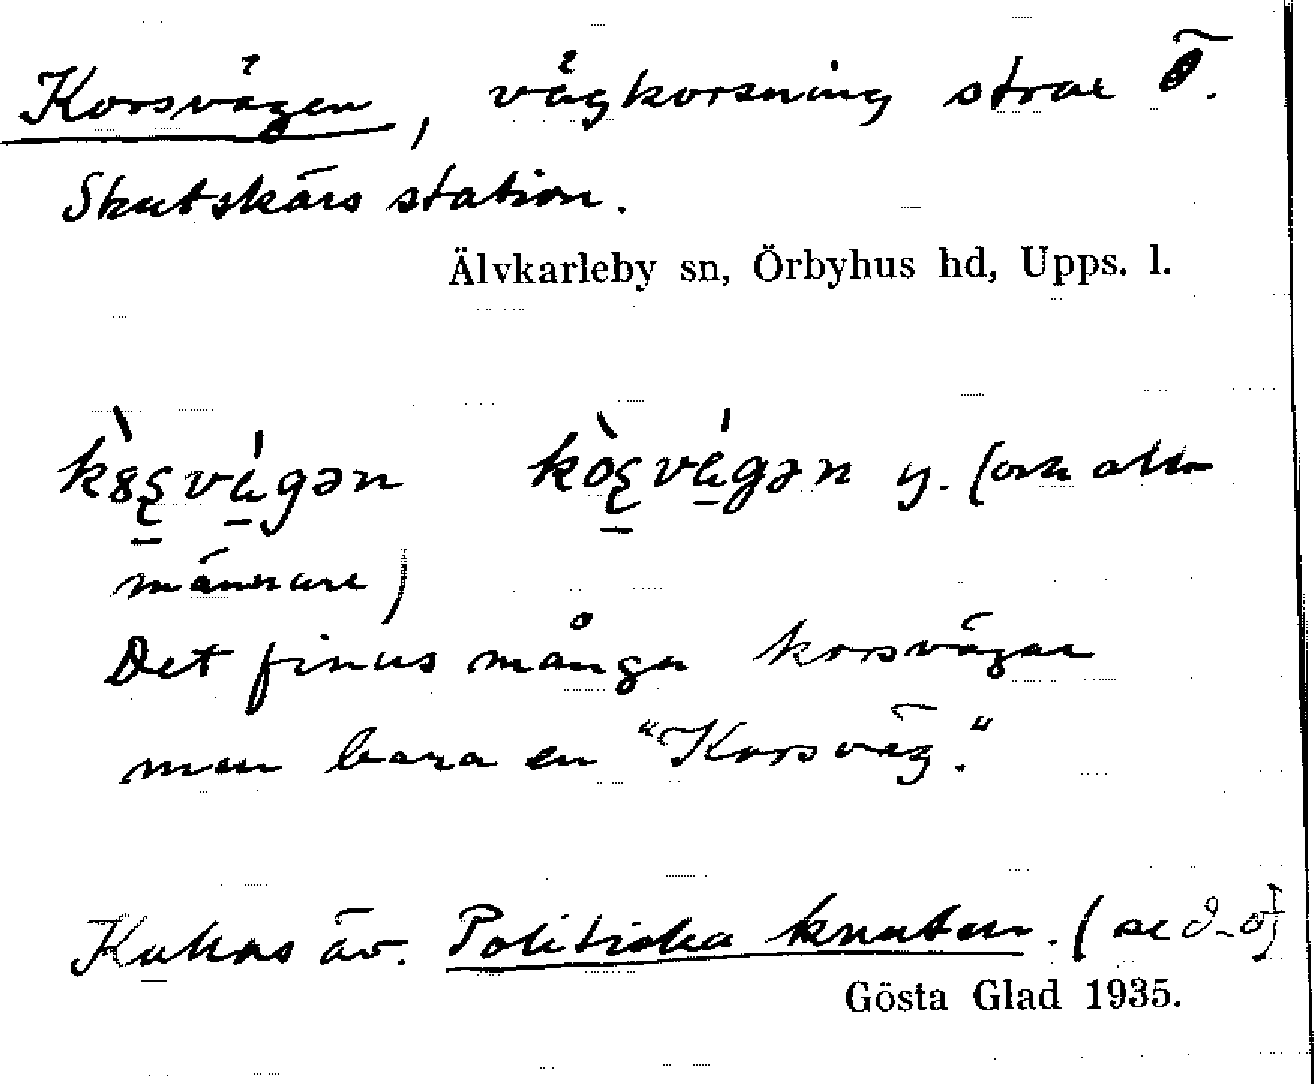 Korsvägen, vägkorsning strax Ö.
Skutskärs station.
Älvkarleby sn, Örbyhus hd, Upps. l.
y. (och
männare)
Det finns många korsvägar
men bara en "Korsväg."
Kallas äv. Politiska knuten. (se d.o.)
Gösta Glad 1935.